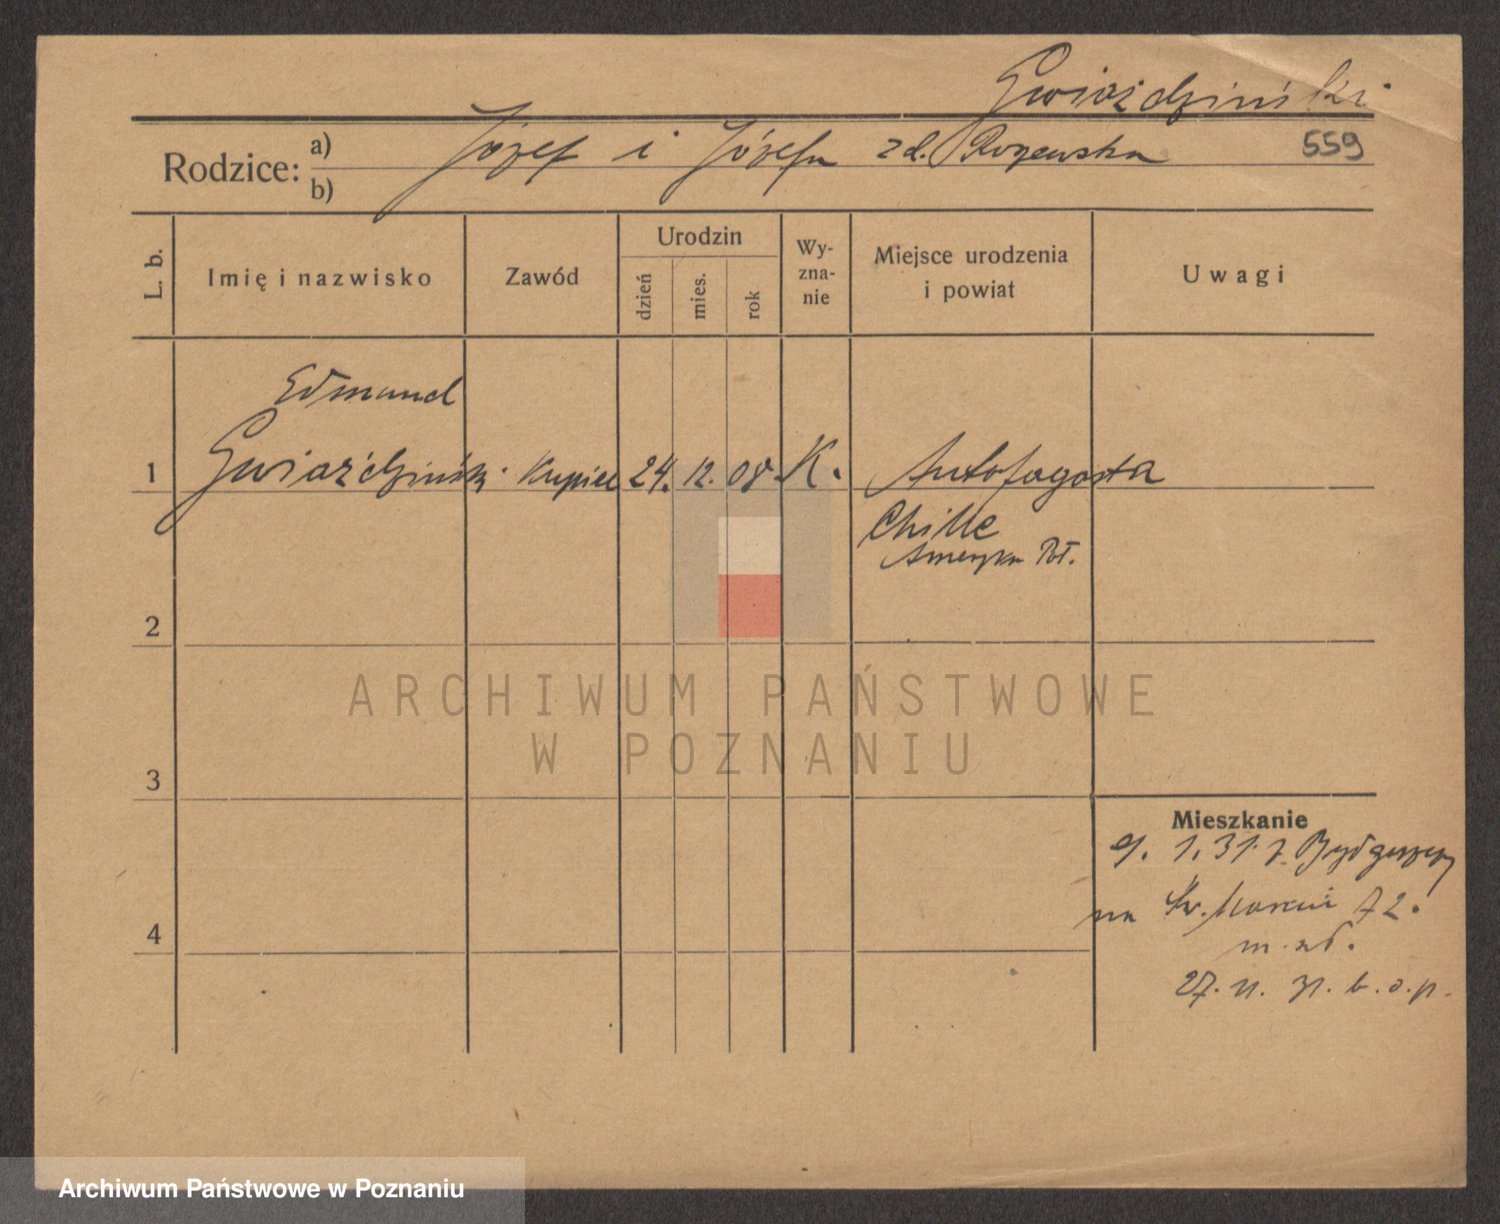 Gwiaździński
Rodzice: a) Józef i Józefa zd. Rozewska 559
b)
L. b. Imię i nazwisko Zawód Urodzin dzień mies. rok Wy-zna-nie Miejsce urodzenia i powiat Uwagi
Edmund
1 Gwiaździński Kupiec 24. 12. 08. K. Antofagosta
Chille
Ameryka Pół.
2
ARCHIWUM PAŃSTWOWE
W POZNANIU
3
Mieszkanie
9. 1. 31. z Bydgoszczy
na Św. Marcin 72.
4
m. nd.
27. 11. 31. b. o. p.
Archiwum Państwowe w Poznaniu